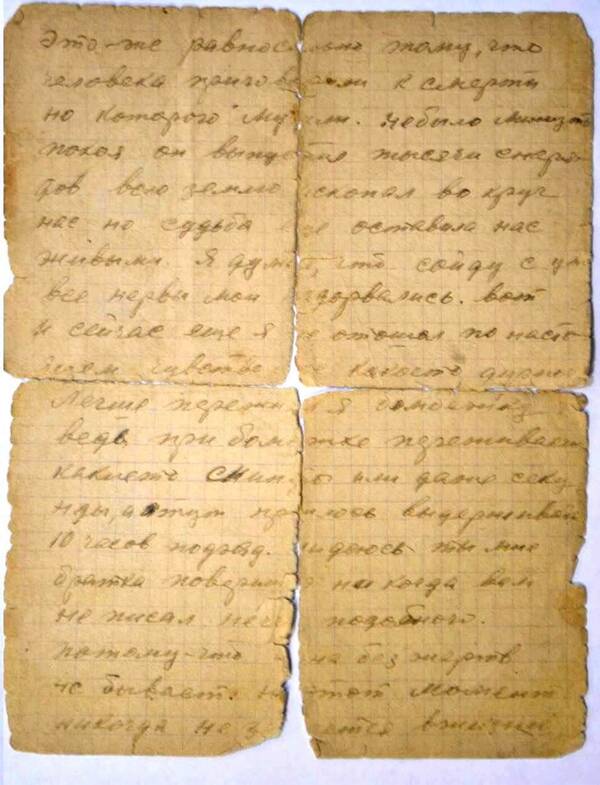 Это-же равносильно тому, что
человека приговорили к смерти
но которого мучили. небыло минуты
покоя он выпустил тысячи снаря
дов всю землю ископал во круг
нас но судьба еще оставила нас
живыми. Я думал, что сойду с ума
все нервы мои издорвались. вот
и сейчас еще я не отошол по насто
ящем чувстве
Легше пережи я бомбежку
ведь при бомбежке переживаешь
какието минуты или даже секу
нды, а тут пришлось выдерживать
10 часов подряд. надеюсь ты мне
братка поверишь я никогда вам
не писал нечего подобного.
потому-что война без жертв
не бывает. но этот момент
никогда не забудется в жизни